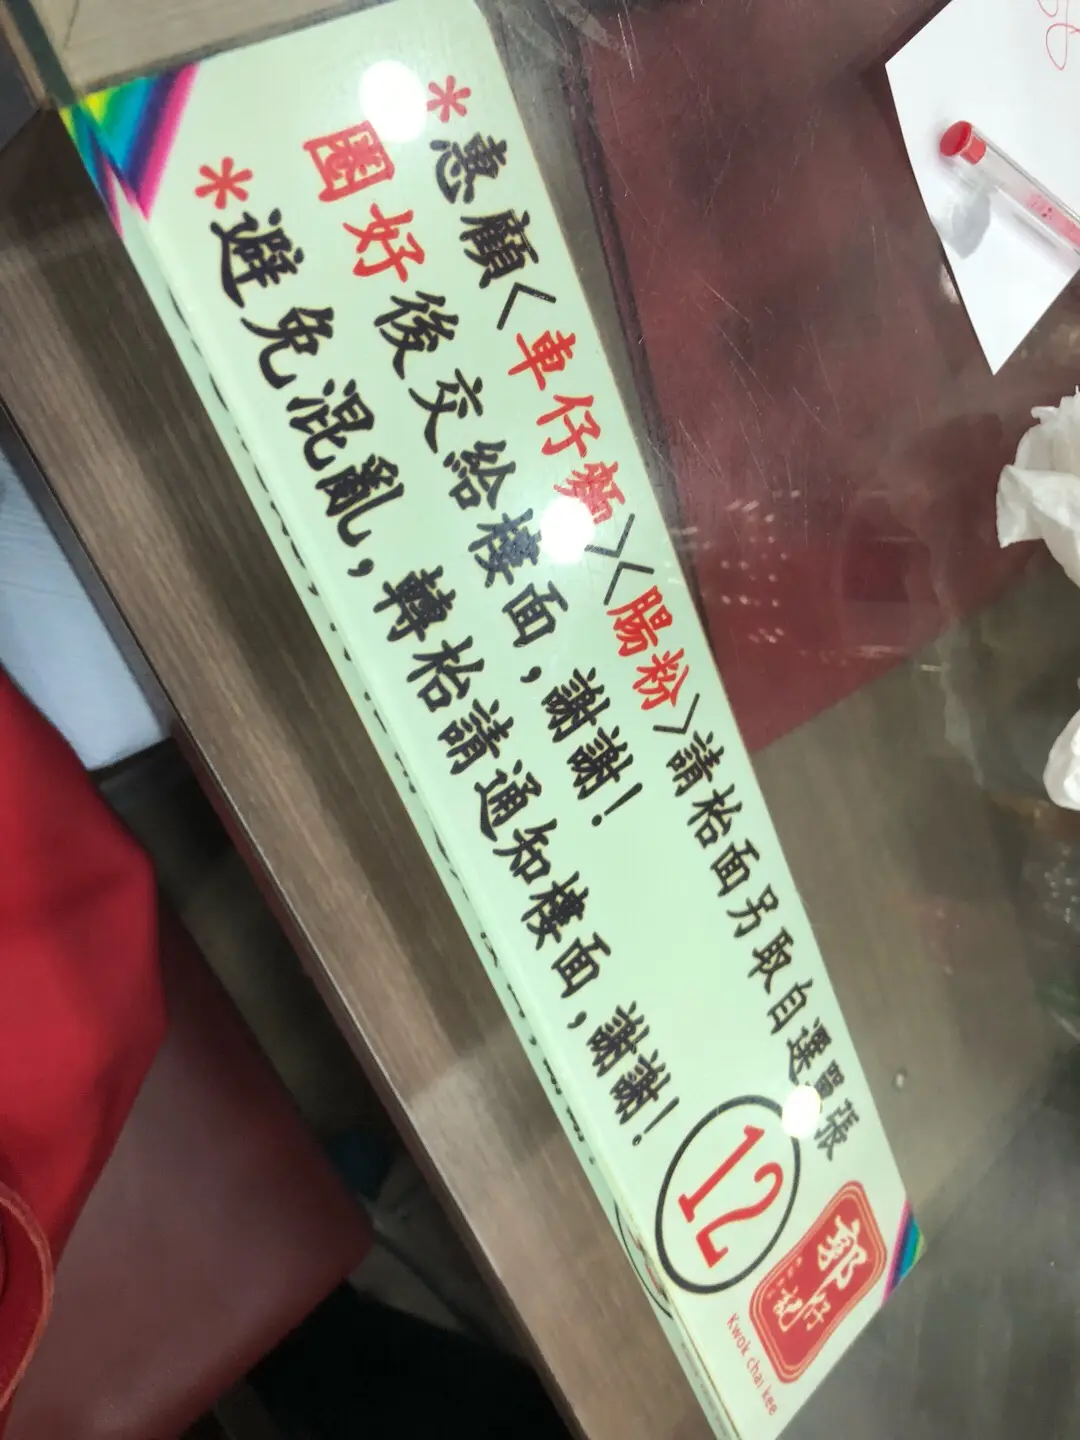 *惠顧<車仔麵><腸粉>請枱面另取自選單張
圈好後交給樓面，謝謝!
*避免混亂，轉枱請通知樓面，謝謝!
12
郭仔記
Kwok chai kee